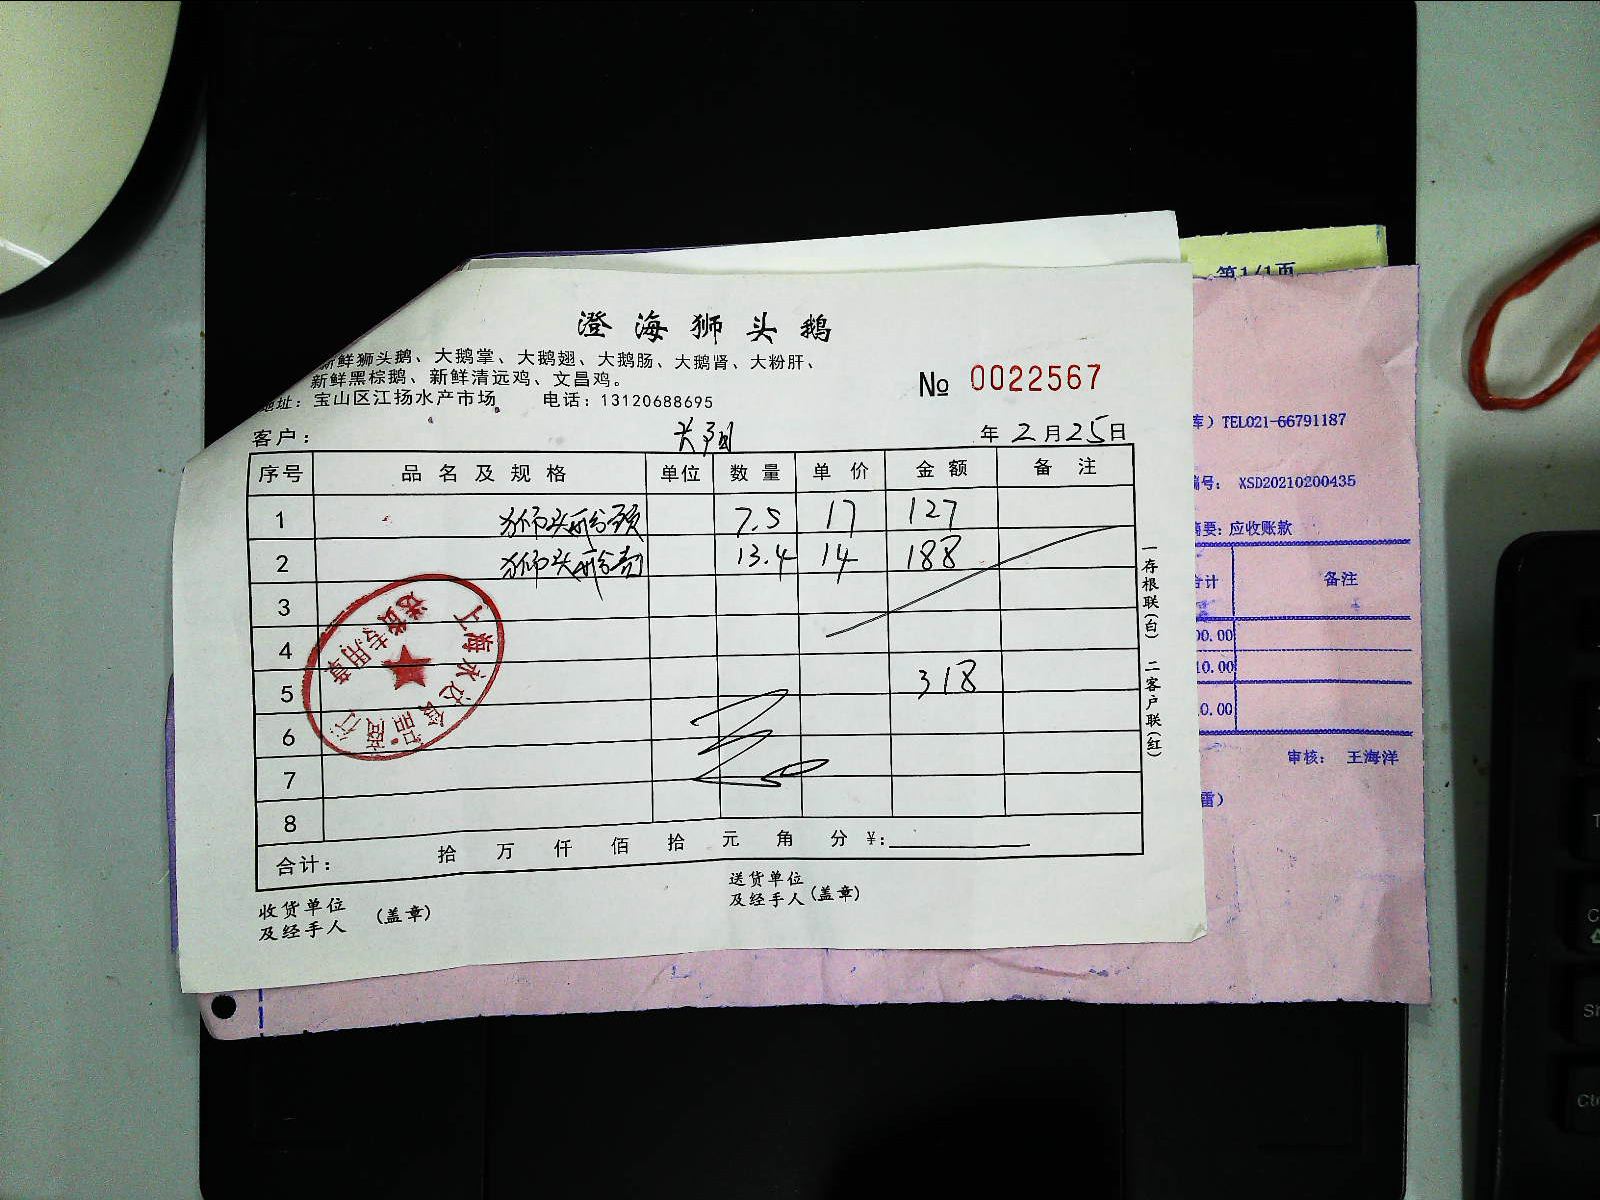 澄海狮头鹅
新鲜狮头鹅、大鹅掌、大鹅翅、大鹅肠、大鹅肾、大粉肝、
新鲜黑棕鹅、新鲜清远鸡、文昌鸡。
地址：宝山区江扬水产市场 电话：13120688695
№ 0022567
客户： 年 2月25日
序号 品名及规格 单位 数量 单价 金额 备注
1 狮头 7.5 17 127
2 狮头 13.4 14 188
3
4
5 318
6
7
8
合计： 拾 万 仟 佰 拾 元 角 分 ￥:
收货单位
及经手人 (盖章)
送货单位
及经手人 (盖章)
一存根联(白) 二客户联(红)
上海永达食品商行
送货专用章
第1/1页
库）TEL021-66791187
编号： XSD20210200435
摘要：应收账款
合计 备注
00.00
10.00
0.00
审核： 王海洋
雷）